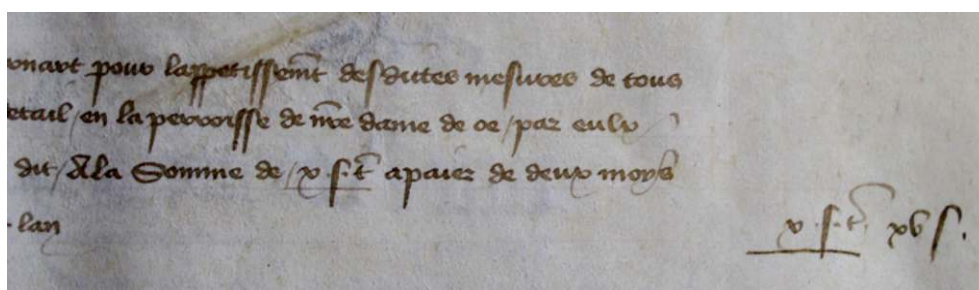 onart pour lappetissemt desdictes mesures de tous
etail / en la parroisse de nre dame de oe / par eulx
dit / A la Somme de / x s. t apaier de deux moys
lan
x. s. t. xv s.